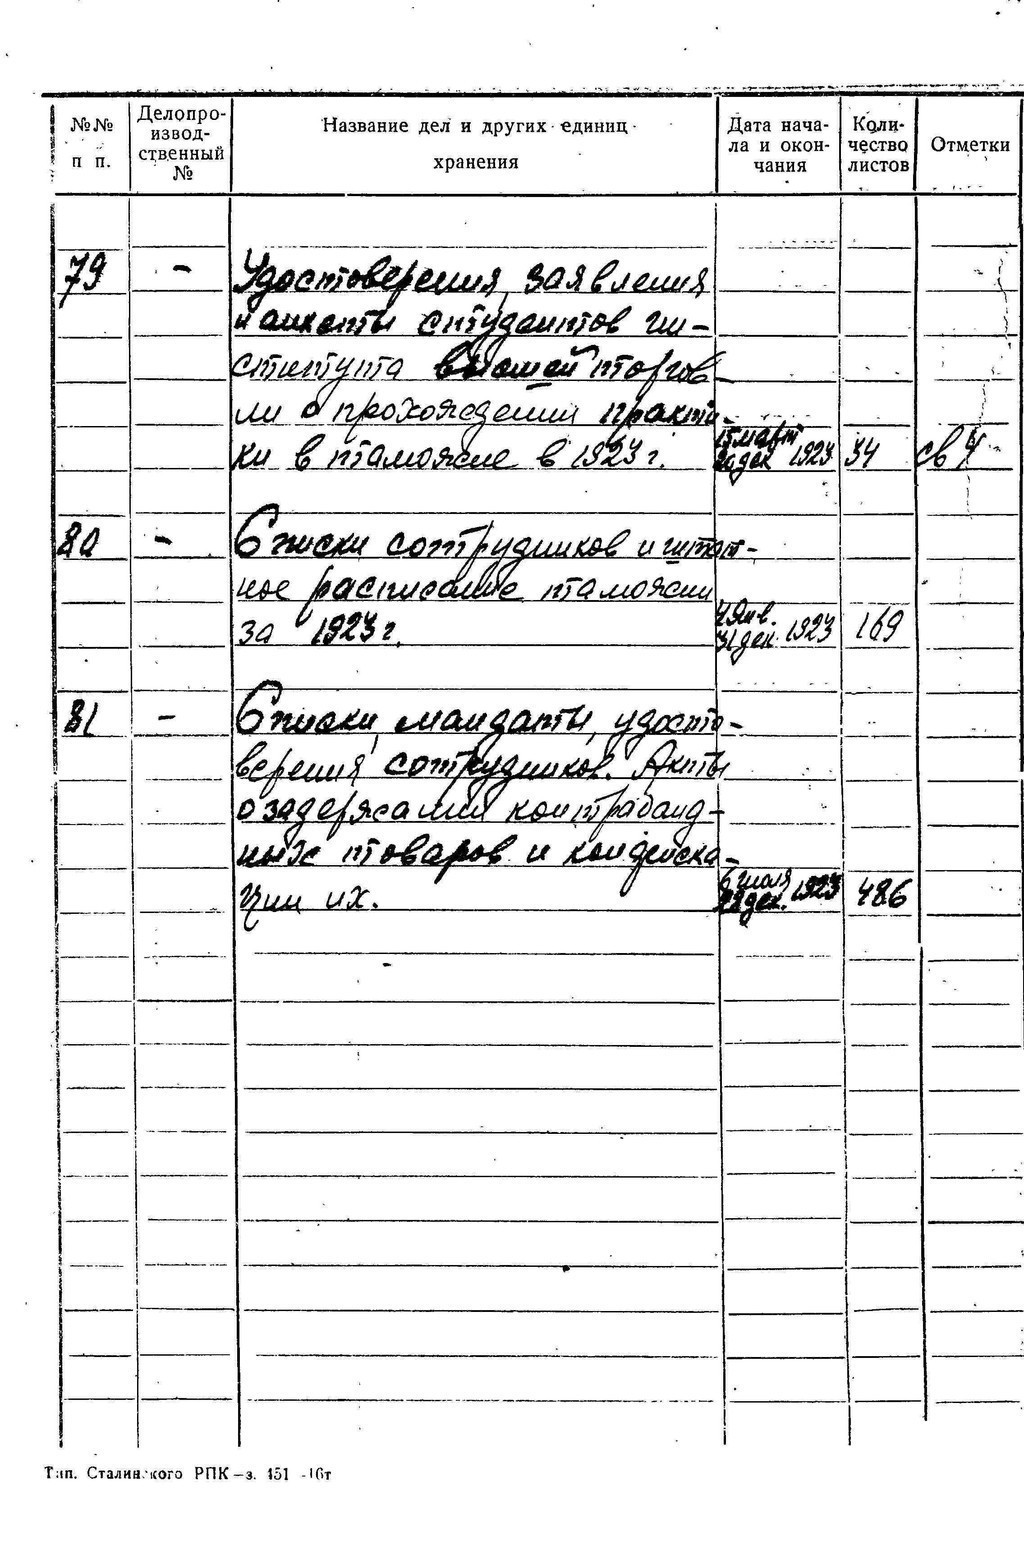 №№ п п.
Делопроизвод-ственный №
Название дел и других единиц хранения
Дата начала и окончания
Количество листов
Отметки
79 -
Удостоверения, заявления
и анкеты студентов ин-
ститута высшей торгов-
ли о прохождении практи-
ки в таможне в 1923 г. 15 март 20 дек 1923 34 св 4
80 -
Списки сотрудников и штат-
ное расписание таможни
за 1923 г. 4 янв. 31 дек. 1923 169
81 -
Списки, мандаты, удосто-
верения сотрудников. Акты
о задержании контрабанд-
ных товаров и конфиска-
ции их. 6 июля 28 дек. 1923 486
Тип. Сталинского РПК—з. 451 -16т